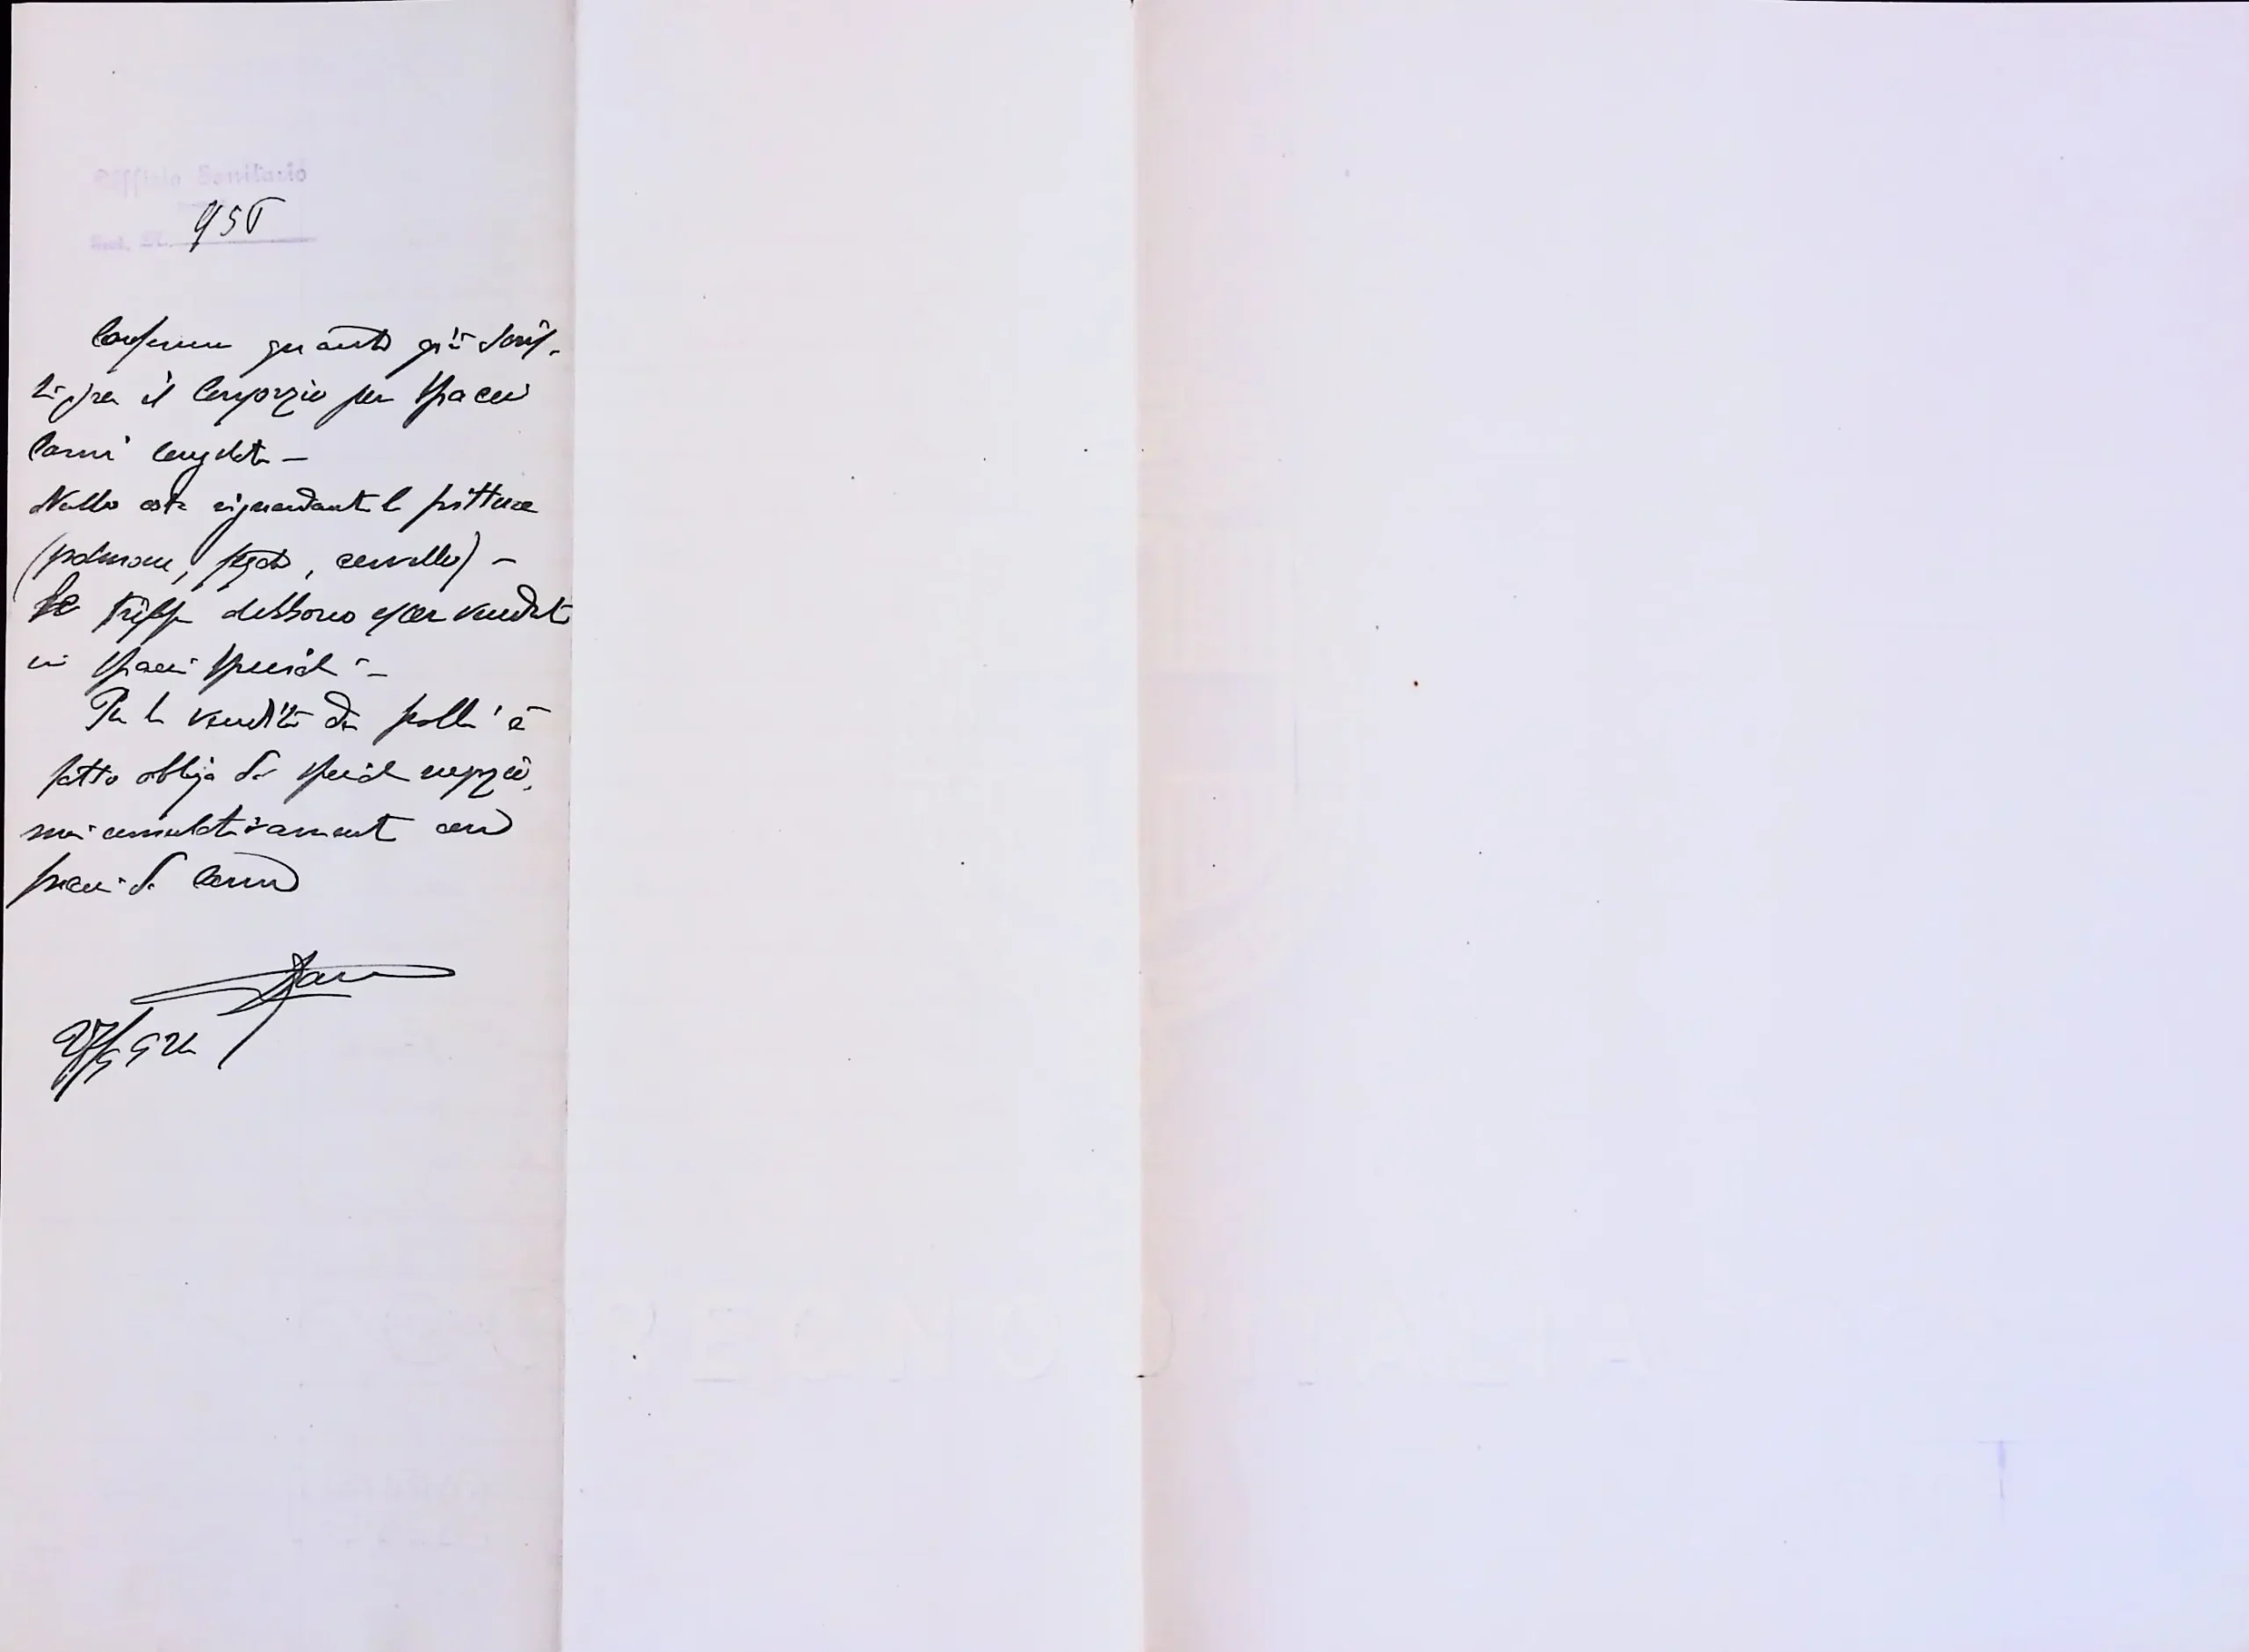 Ufficio Sanitario
Prot. N. 950
Confermo quanto già scrit-
to per il Consorzio per spacci
Carni congelate —
Nulla osta riguardante le fritture
(polmone, fegato, cervello) —
Le trippe debbono esser vendute
in spacci speciali —
Per la vendita di polli è
fatto obbligo di speciale negozio,
mai cumulativamente con
spacci di carne